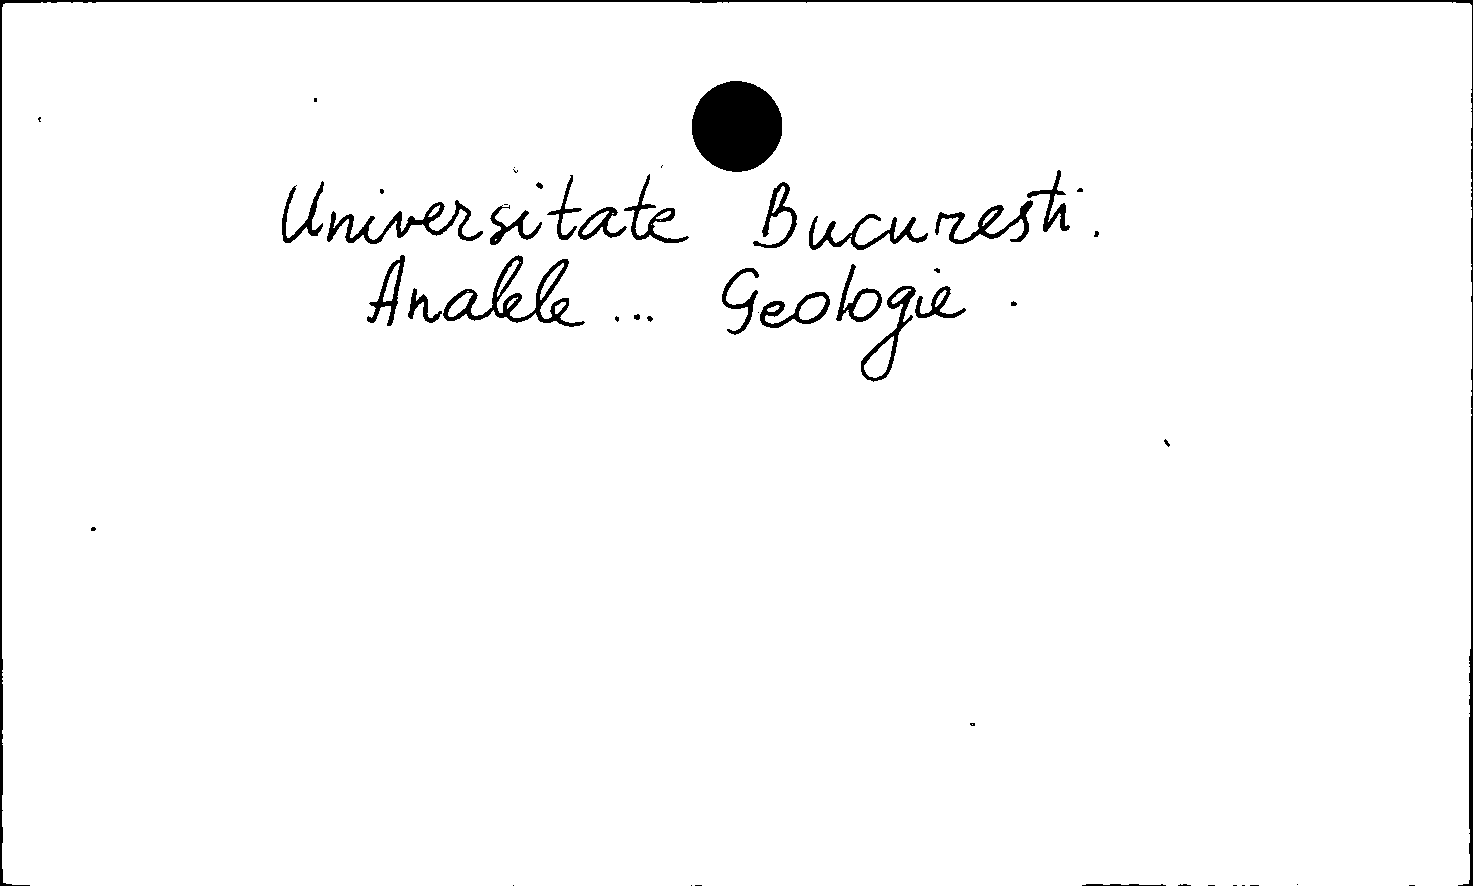 Universitate Bucuresti.
Analele ... Geologie.